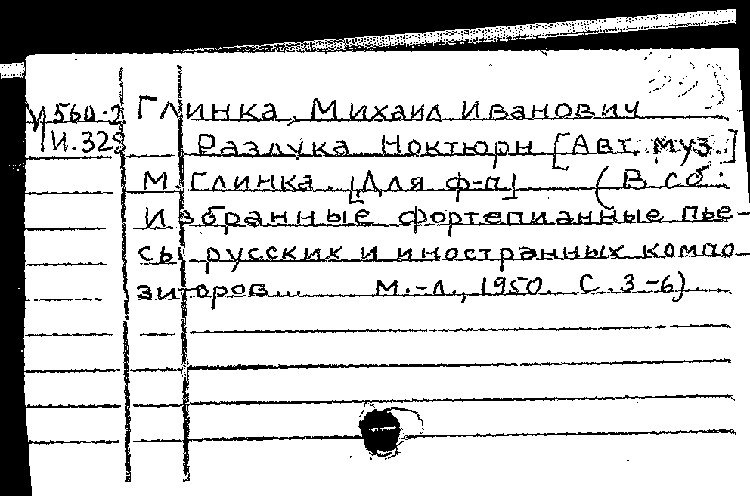 И 560-2 Глинка, Михаил Иванович
И.325 Разлука. Ноктюрн [Авт. муз.]
М. Глинка. [Для ф-п] (В сб:
Избранные фортепианные пье-
сы русских и иностранных компо-
зиторов... М.-Л., 1950. С. 3-6)